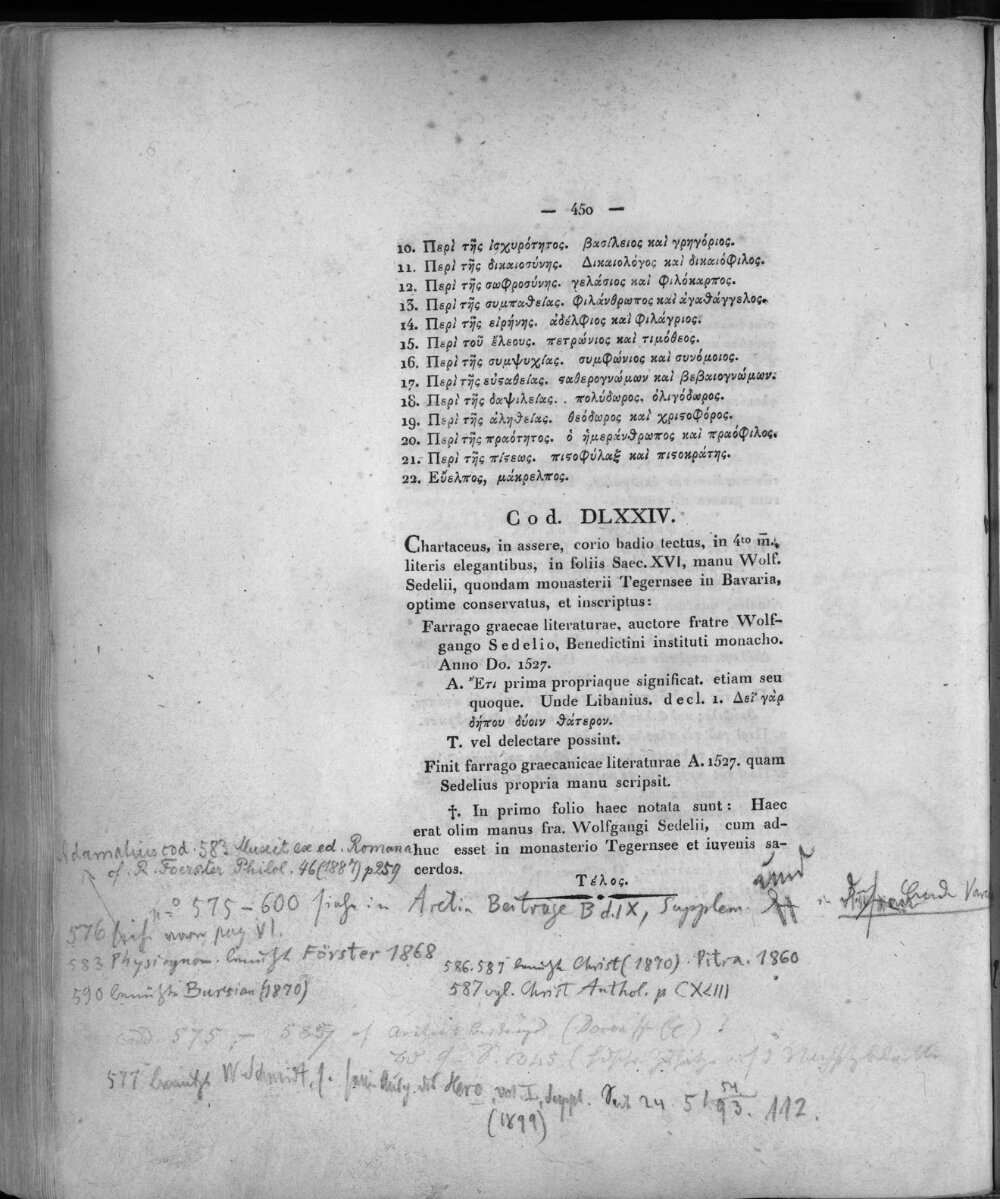 — 450 —
10. Περὶ τῆς ἰσχυρότητος. βασίλειος καὶ γρηγόριος.
11. Περὶ τῆς δικαιοσύνης. Δικαιολόγος καὶ δικαιόφιλος.
12. Περὶ τῆς σωφροσύνης. γελάσιος καὶ Φιλόκαρπος.
13. Περὶ τῆς συμπαθείας. Φιλάνθρωπος καὶ ἀγαθάγγελος.
14. Περὶ τῆς εἰρήνης. ἀδέλφιος καὶ Φιλάγριος.
15. Περὶ τοῦ ἔλεους. πετρώνιος καὶ τιμόθεος.
16. Περὶ τῆς συμψυχίας. συμφώνιος καὶ συνόμοιος.
17. Περὶ τῆς εὐϛαθείας. ϛαθερογνώμων καὶ βεβαιογνώμων.
18. Περὶ τῆς δαψιλείας. . πολύδωρος. ὀλιγόδωρος.
19. Περὶ τῆς ἀληθείας. θεόδωρος καὶ χριϛοφόρος.
20. Περὶ τῆς πραότητος. ὁ ἡμεράνθρωπος καὶ πραόφιλος.
21. Περὶ τῆς πίϛεως. πιϛοφύλαξ καὶ πιϛοκράτης.
22. Εὔελπος, μάκρελπος.
Cod. DLXXIV.
Chartaceus, in assere, corio badio tectus, in 4to m̄.,
literis elegantibus, in foliis Saec. XVI, manu Wolf.
Sedelii, quondam monasterii Tegernsee in Bavaria,
optime conservatus, et inscriptus:
Farrago graecae literaturae, auctore fratre Wolf-
gango Sedelio, Benedictini instituti monacho.
Anno Do. 1527.
A. Ἔτι prima propriaque significat. etiam seu
quoque. Unde Libanius. decl. 1. Δεῖ γὰρ
δήπου δύοιν θάτερον.
T. vel delectare possint.
Finit farrago graecanicae literaturae A. 1527. quam
Sedelius propria manu scripsit.
†. In primo folio haec notata sunt: Haec
erat olim manus fra. Wolfgangi Sedelii, cum ad-
huc esset in monasterio Tegernsee et iuvenis sa-
cerdos.
Τέλος.
Adamatius cod. 583 ex ed. Romana
cf. R. Foerster Philol. 46 (1887) p 259
nº 575-600 siehe in Aretin Beiträge Bd. IX, Supplem.
576 vorn pag VI.
583 Physiognom. benützt Förster 1868
586. 587 benützt Christ (1870). Pitra. 1860
590 benützte Bursian (1870)
587 vgl. Christ Anthol. p CXLIII
cod 575 - 585
577 benützt W. Schmidt, Hero, vol. I, Suppl. Seit 24. 51 54 93. 112.
(1899)